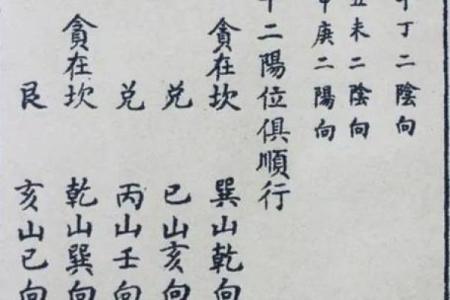 丁二陰向
丑未二陰向
甲庚二陽向
十二陽位俱順行
貪在坎 巽山乾向
兑 巳山亥向
兑 丙山壬向
貪在坎 乾山巽向
艮 亥山巳向